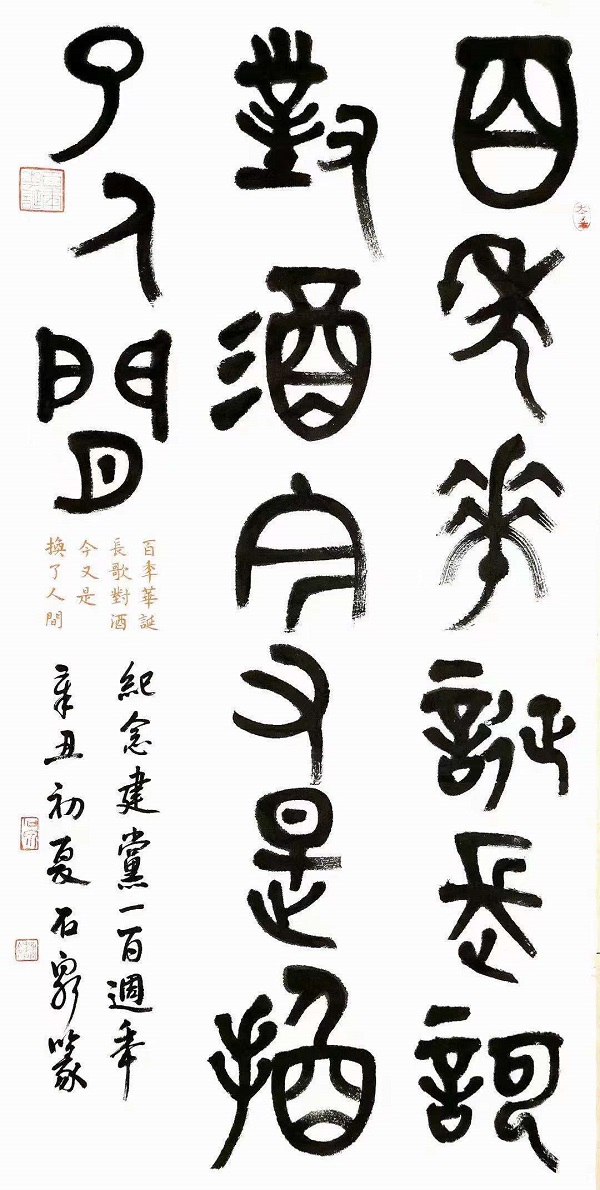 百年華誕長訶
對酒今又是換
了人間
百年華誕
長歌對酒
今又是
換了人間
紀念建黨一百週年
辛丑初夏石泉篆